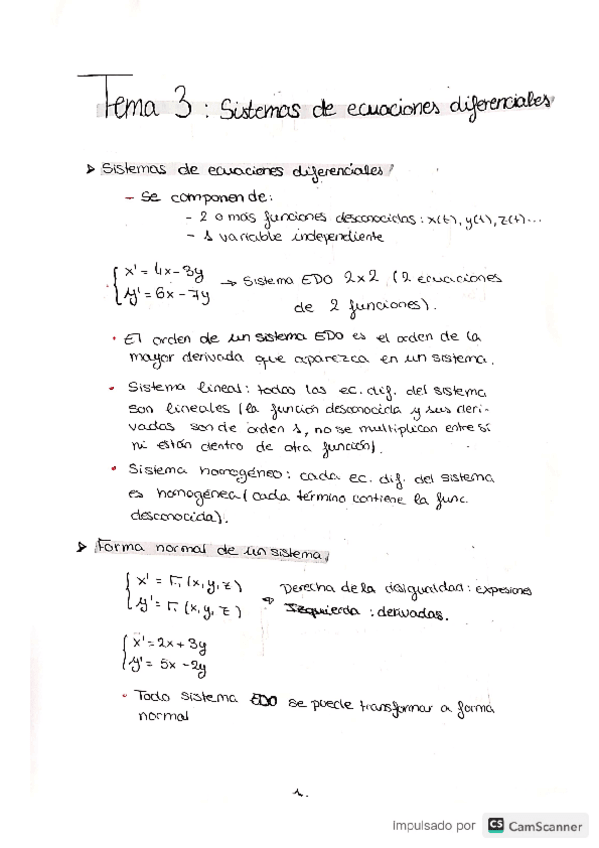 Tema 3 : Sistemas de ecuaciones diferenciales
➤ Sistemas de ecuaciones diferenciales
- Se componen de:
- 2 o más funciones desconocidas : x(t), y(t), z(t)...
- 1 variable independiente
{ x' = 4x - 3y
y' = 6x - 7y → Sistema EDO 2x2 (2 ecuaciones
de 2 funciones).
• El orden de un sistema EDO es el orden de la
mayor derivada que aparezca en un sistema.
• Sistema lineal : todas las ec. dif. del sistema
son lineales (la función desconocida y sus deri-
vadas son de orden 1, no se multiplican entre sí
ni están dentro de otra función).
• Sistema homogéneo : cada ec. dif. del sistema
es homogénea (cada término contiene la func.
desconocida).
➤ Forma normal de un sistema
{ x' = F₁ (x, y, z) Derecha de la desigualdad : expresiones
y' = F₁ (x, y, z) → Izquierda : derivadas.
{ x' = 2x + 3y
y' = 5x - 2y
• Todo sistema EDO se puede transformar a forma
normal
1.
Impulsado por CS CamScanner